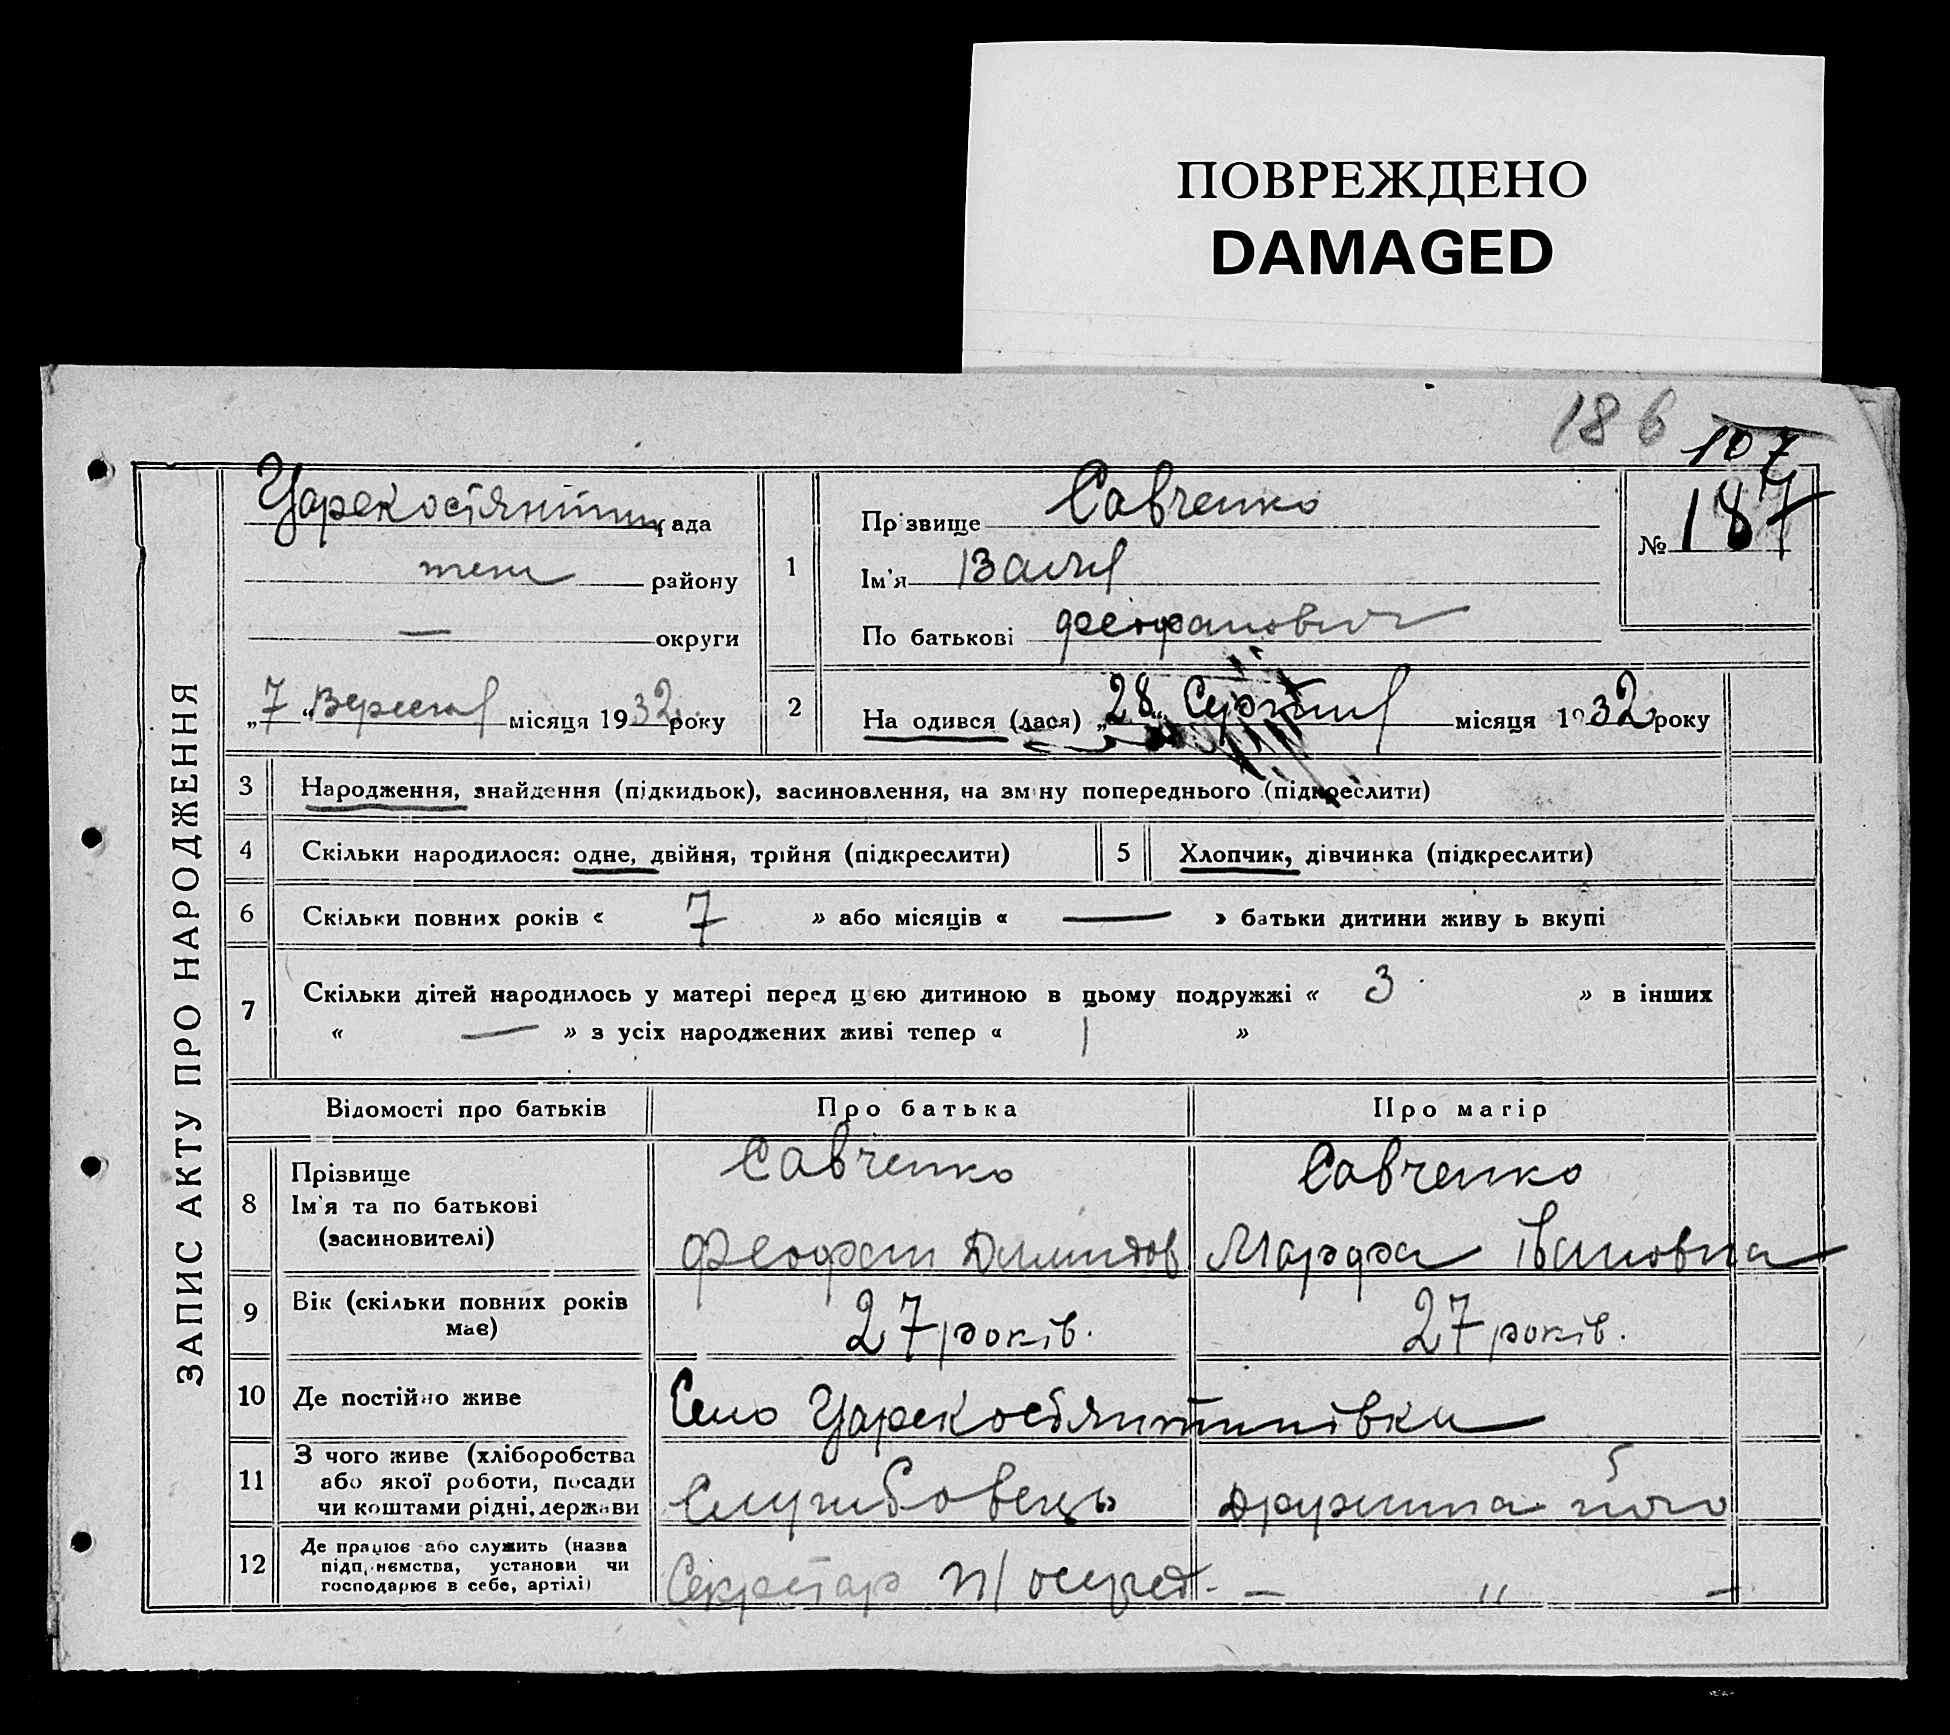 ПОВРЕЖДЕНО
DAMAGED
186
107
187
№
ЗАПИС АКТУ ПРО НАРОДЖЕННЯ
рада
району
— округи
„7“ Вересня місяця 1932 року
1
Прізвище Савченко
Ім'я
По батькові Феофанович
2
Народився (лася) „28“ Серпня місяця 1932 року
3 Народження, знайдення (підкидьок), засиновлення, на зміну попереднього (підкреслити)
4 Скільки народилося: одне, двійня, трійня (підкреслити)
5 Хлопчик, дівчинка (підкреслити)
6 Скільки повних років « 7 » або місяців « — » батьки дитини живуть вкупі
7 Скільки дітей народилось у матері перед цією дитиною в цьому подружжі « 3 » в інших
« — » з усіх народжених живі тепер « 1 »
Відомості про батьків Про батька Про матір
8 Прізвище
Ім'я та по батькові
(засиновителі)
Савченко
Феофан
Савченко
Марфа Івановна
9 Вік (скільки повних років
має)
27 років.
27 років.
10 Де постійно живе
Село Царекостянтинівка
11 З чого живе (хліборобства
або якої роботи, посади
чи коштами рідні, держави
Службовець
Дружина його
12 Де працює або служить (назва
підприємства, установи чи
господарює в себе, артілі)
Секретар
— " —